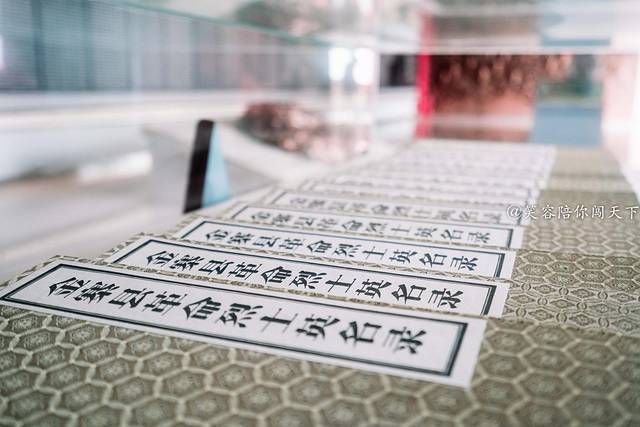 金寨县革命烈士英名录
金寨县革命烈士英名录
金寨县革命烈士英名录
金寨县革命烈士英名录
@笑容陪你闯天下